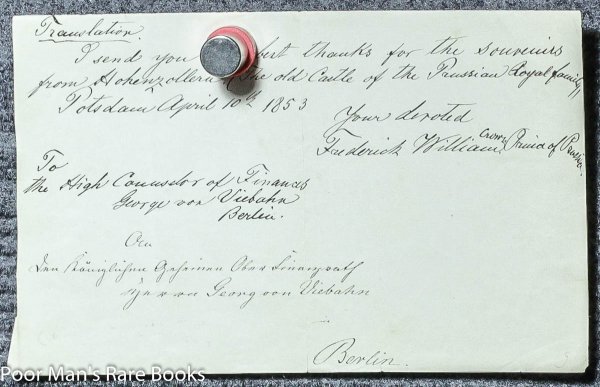 Translation.
I send you best thanks for the souvenirs
from Hohenzollern (the old Castle of the Prussian Royal family)
Potsdam April 10th 1853
Your devoted
Frederick William Crown Prince of Prussia.
To
the High Counselor of Finances
George von Viebahn
Berlin.
An
den Königlichen Geheimen Ober Finanzrath
Herrn Georg von Viebahn
Berlin.
Poor Man's Rare Books